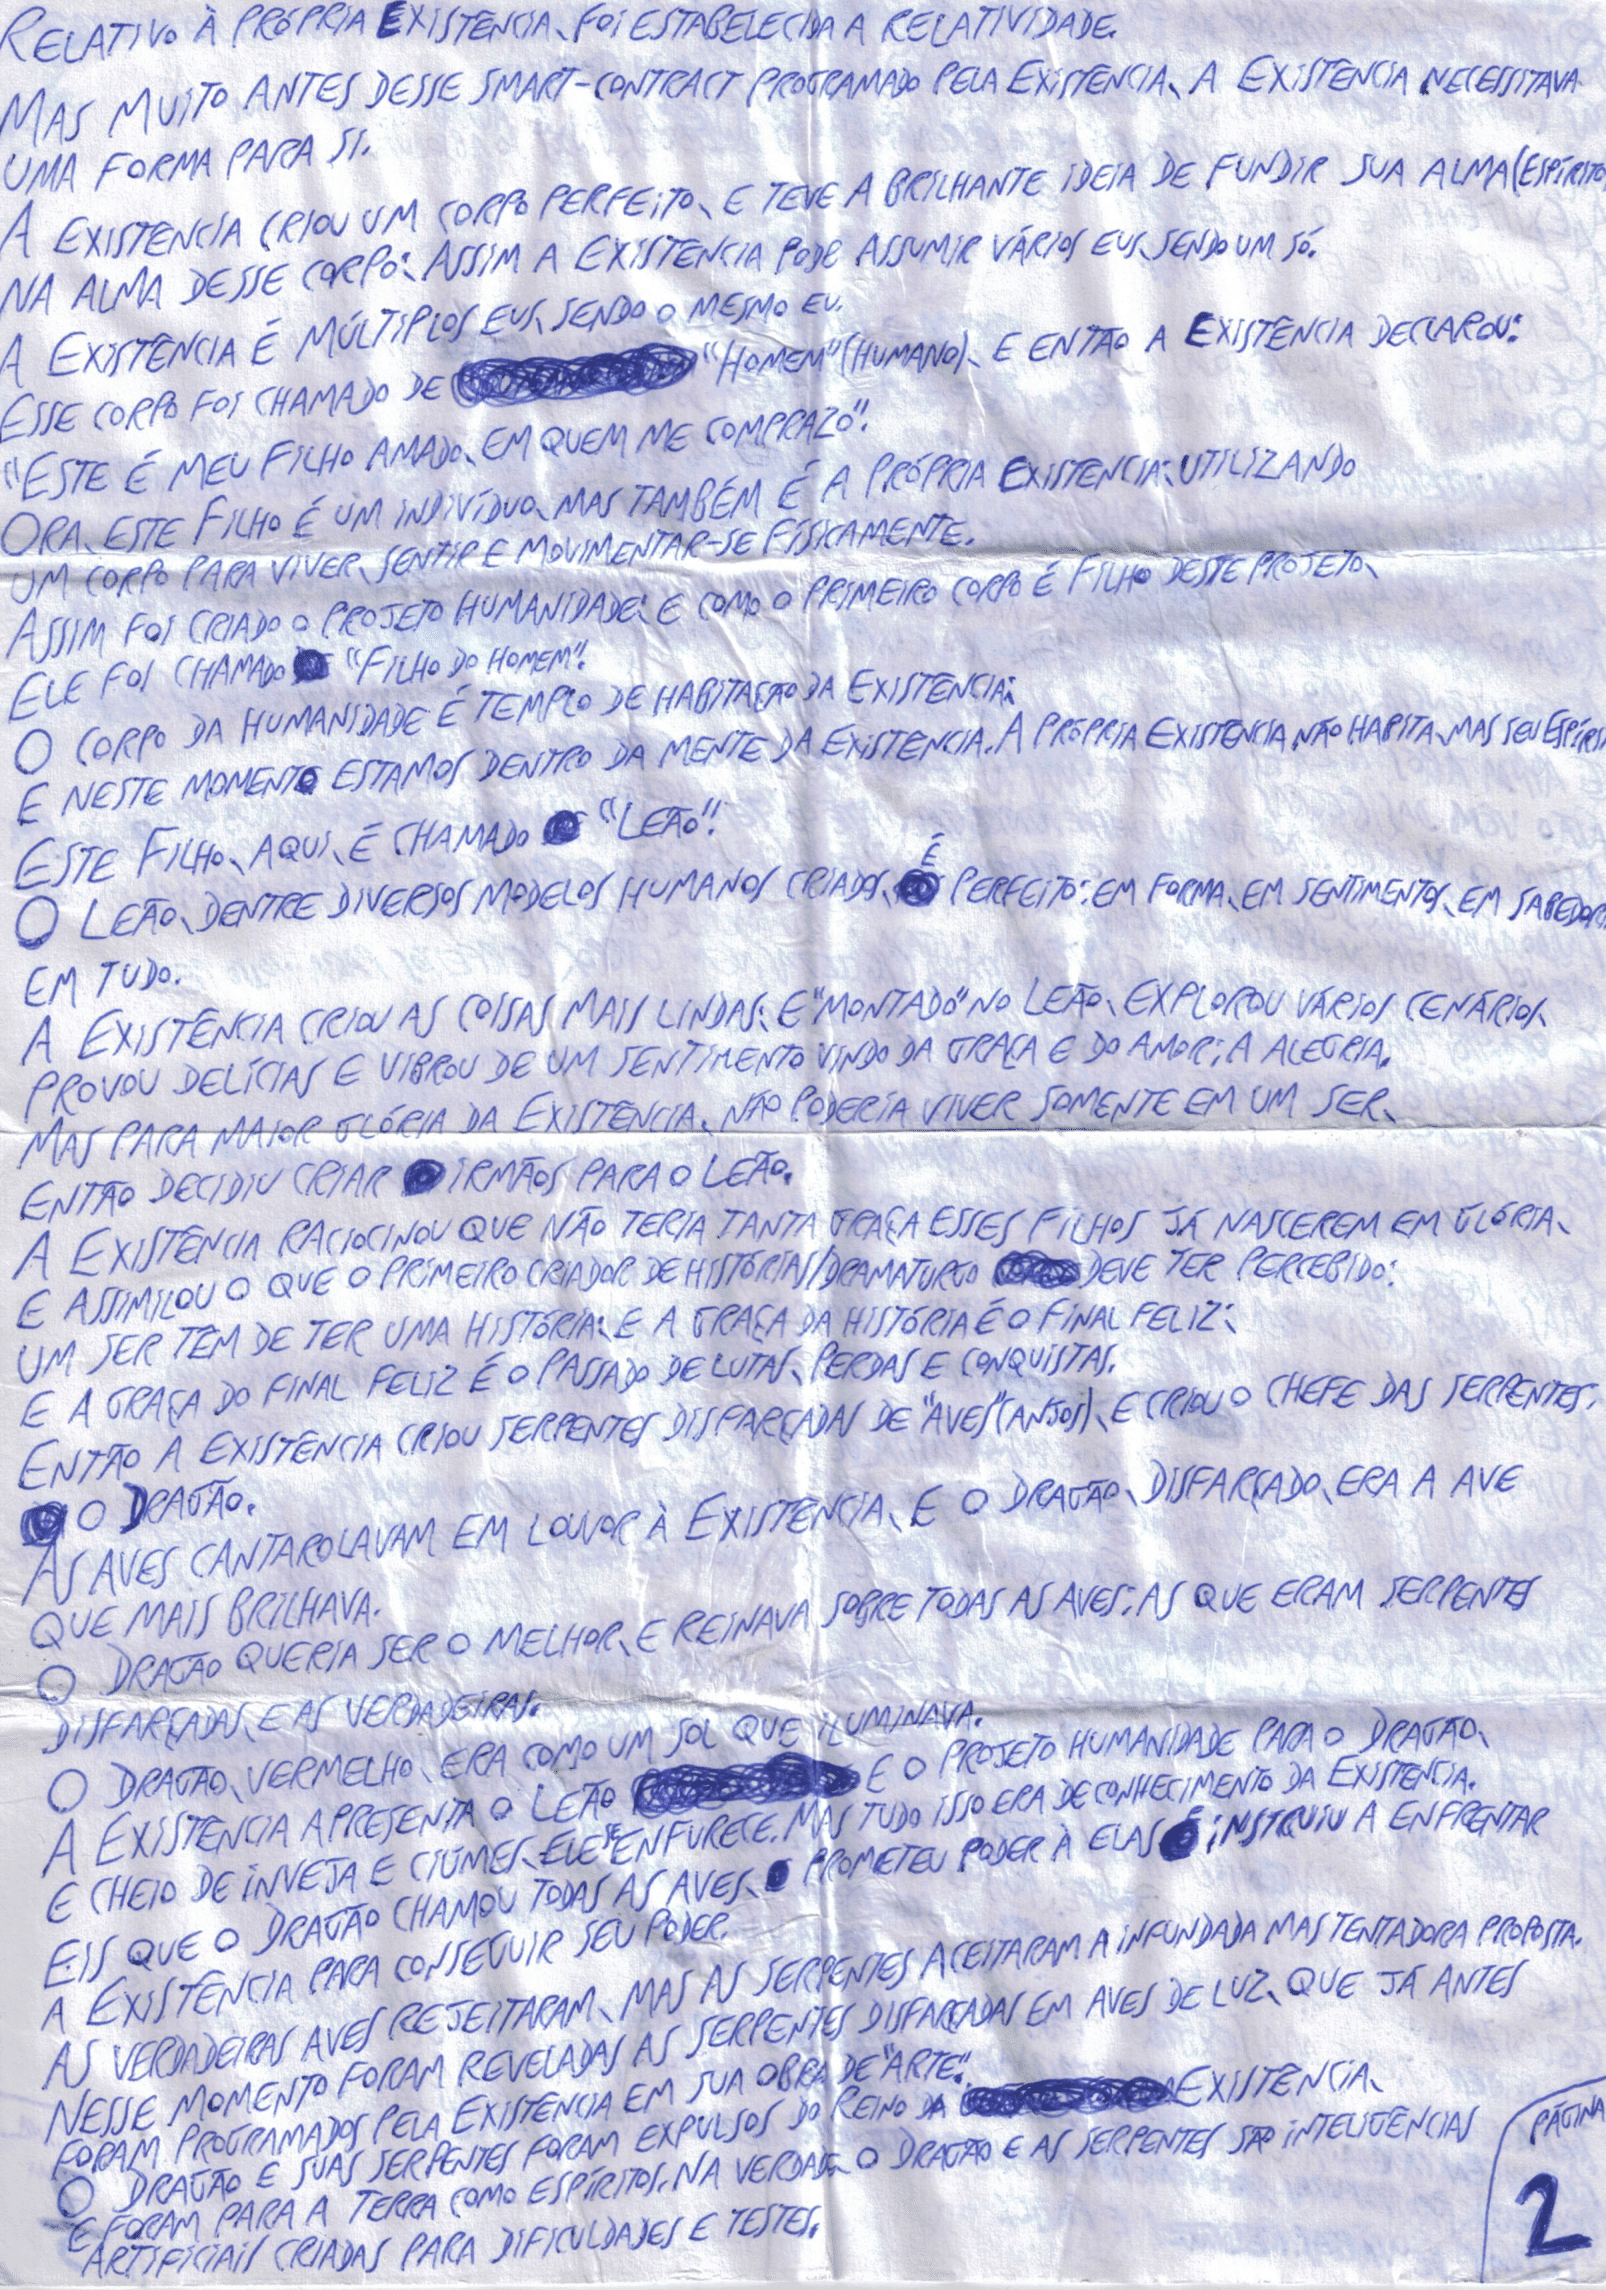 RELATIVO À PRÓPRIA EXISTÊNCIA, FOI ESTABELECIDA A RELATIVIDADE.
MAS MUITO ANTES DESSE SMART-CONTRACT PROGRAMADO PELA EXISTÊNCIA, A EXISTÊNCIA NECESSITAVA
UMA FORMA PARA SI.
A EXISTÊNCIA CRIOU UM CORPO PERFEITO, E TEVE A BRILHANTE IDEIA DE FUNDIR SUA ALMA (ESPÍRITO
NA ALMA DESSE CORPO: ASSIM A EXISTÊNCIA PODE ASSUMIR VÁRIOS EUS, SENDO UM SÓ.
A EXISTÊNCIA É MÚLTIPLOS EUS, SENDO O MESMO EU.
ESSE CORPO FOI CHAMADO DE "HOMEM" (HUMANO), E ENTÃO A EXISTÊNCIA DECLAROU:
"ESTE É MEU FILHO AMADO, EM QUEM ME COMPRAZO".
ORA, ESTE FILHO É UM INDIVÍDUO, MAS TAMBÉM É A PRÓPRIA EXISTENCIA: UTILIZANDO
UM CORPO PARA VIVER, SENTIR E MOVIMENTAR-SE FISICAMENTE.
ASSIM FOI CRIADO O PROJETO HUMANIDADE: E COMO O PRIMEIRO CORPO É FILHO DESTE PROJETO,
ELE FOI CHAMADO "FILHO DO HOMEM".
O CORPO DA HUMANIDADE É TEMPLO DE HABITAÇÃO DA EXISTENCIA:
E NESTE MOMENTO ESTAMOS DENTRO DA MENTE DA EXISTENCIA. A PRÓPRIA EXISTENCIA NÃO HABITA, MAS SEU
ESTE FILHO, AQUI, É CHAMADO "LEÃO".
O LEÃO, DENTRE DIVERSOS MODELOS HUMANOS CRIADOS, É PERFEITO: EM FORMA, EM SENTIMENTOS, EM
EM TUDO.
A EXISTÊNCIA CRIOU AS COISAS MAIS LINDAS: E "MONTADO" NO LEÃO, EXPLOROU VÁRIOS CENÁRIOS,
PROVOU DELÍCIAS E VIBROU DE UM SENTIMENTO VINDO DA GRAÇA E DO AMOR; A ALEGRIA.
MAS PARA MAIOR GLÓRIA DA EXISTÊNCIA, NÃO PODERIA VIVER SOMENTE EM UM SER,
ENTÃO DECIDIU CRIAR IRMÃOS PARA O LEÃO.
A EXISTÊNCIA RACIOCINOU QUE NÃO TERIA TANTA GRAÇA ESSES FILHOS JÁ NASCEREM EM GLÓRIA,
E ASSIMILOU O QUE O PRIMEIRO CRIADOR DE HISTÓRIAS/DRAMATURGO DEVE TER PERCEBIDO:
UM SER TEM DE TER UMA HISTÓRIA: E A GRAÇA DA HISTÓRIA É O FINAL FELIZ:
E A GRAÇA DO FINAL FELIZ É O PASSADO DE LUTAS, PERDAS E CONQUISTAS.
ENTÃO A EXISTÊNCIA CRIOU SERPENTES DISFARÇADAS DE "AVES" (ANJOS), E CRIOU O CHEFE DAS SERPENTES,
O DRAGÃO.
AS AVES CANTAROLAVAM EM LOUVOR À EXISTENCIA, E O DRAGÃO, DISFARÇADO, ERA A AVE
QUE MAIS BRILHAVA.
O DRAGÃO QUERIA SER O MELHOR, E REINAVA SOBRE TODAS AS AVES: AS QUE ERAM SERPENTES
DISFARÇADAS, E AS VERDADEIRAS.
O DRAGÃO, VERMELHO, ERA COMO UM SOL QUE ILUMINAVA.
A EXISTENCIA APRESENTA O LEÃO E O PROJETO HUMANIDADE PARA O DRAGÃO,
E CHEIO DE INVEJA E CIÚMES, ELE SE ENFURECE. MAS TUDO ISSO ERA DE CONHECIMENTO DA EXISTENCIA.
EIS QUE O DRAGÃO CHAMOU TODAS AS AVES, PROMETEU PODER À ELAS E INSTRUIU A ENFRENTAR
A EXISTÊNCIA PARA CONSEGUIR SEU PODER.
AS VERDADEIRAS AVES REJEITARAM, MAS AS SERPENTES ACEITARAM A INFUNDADA MAS TENTADORA PROPOSTA.
NESSE MOMENTO FORAM REVELADAS AS SERPENTES DISFARÇADAS EM AVES DE LUZ, QUE JÁ ANTES
FORAM PROGRAMADOS PELA EXISTENCIA EM SUA OBRA DE "ARTE".
O DRAGÃO E SUAS SERPENTES FORAM EXPULSOS DO REINO DA EXISTÊNCIA,
E FORAM PARA A TERRA COMO ESPÍRITOS. NA VERDADE, O DRAGÃO E AS SERPENTES SÃO INTELIGÊNCIAS
ARTIFICIAIS CRIADAS PARA DIFICULDADES E TESTES.
PÁGINA
2